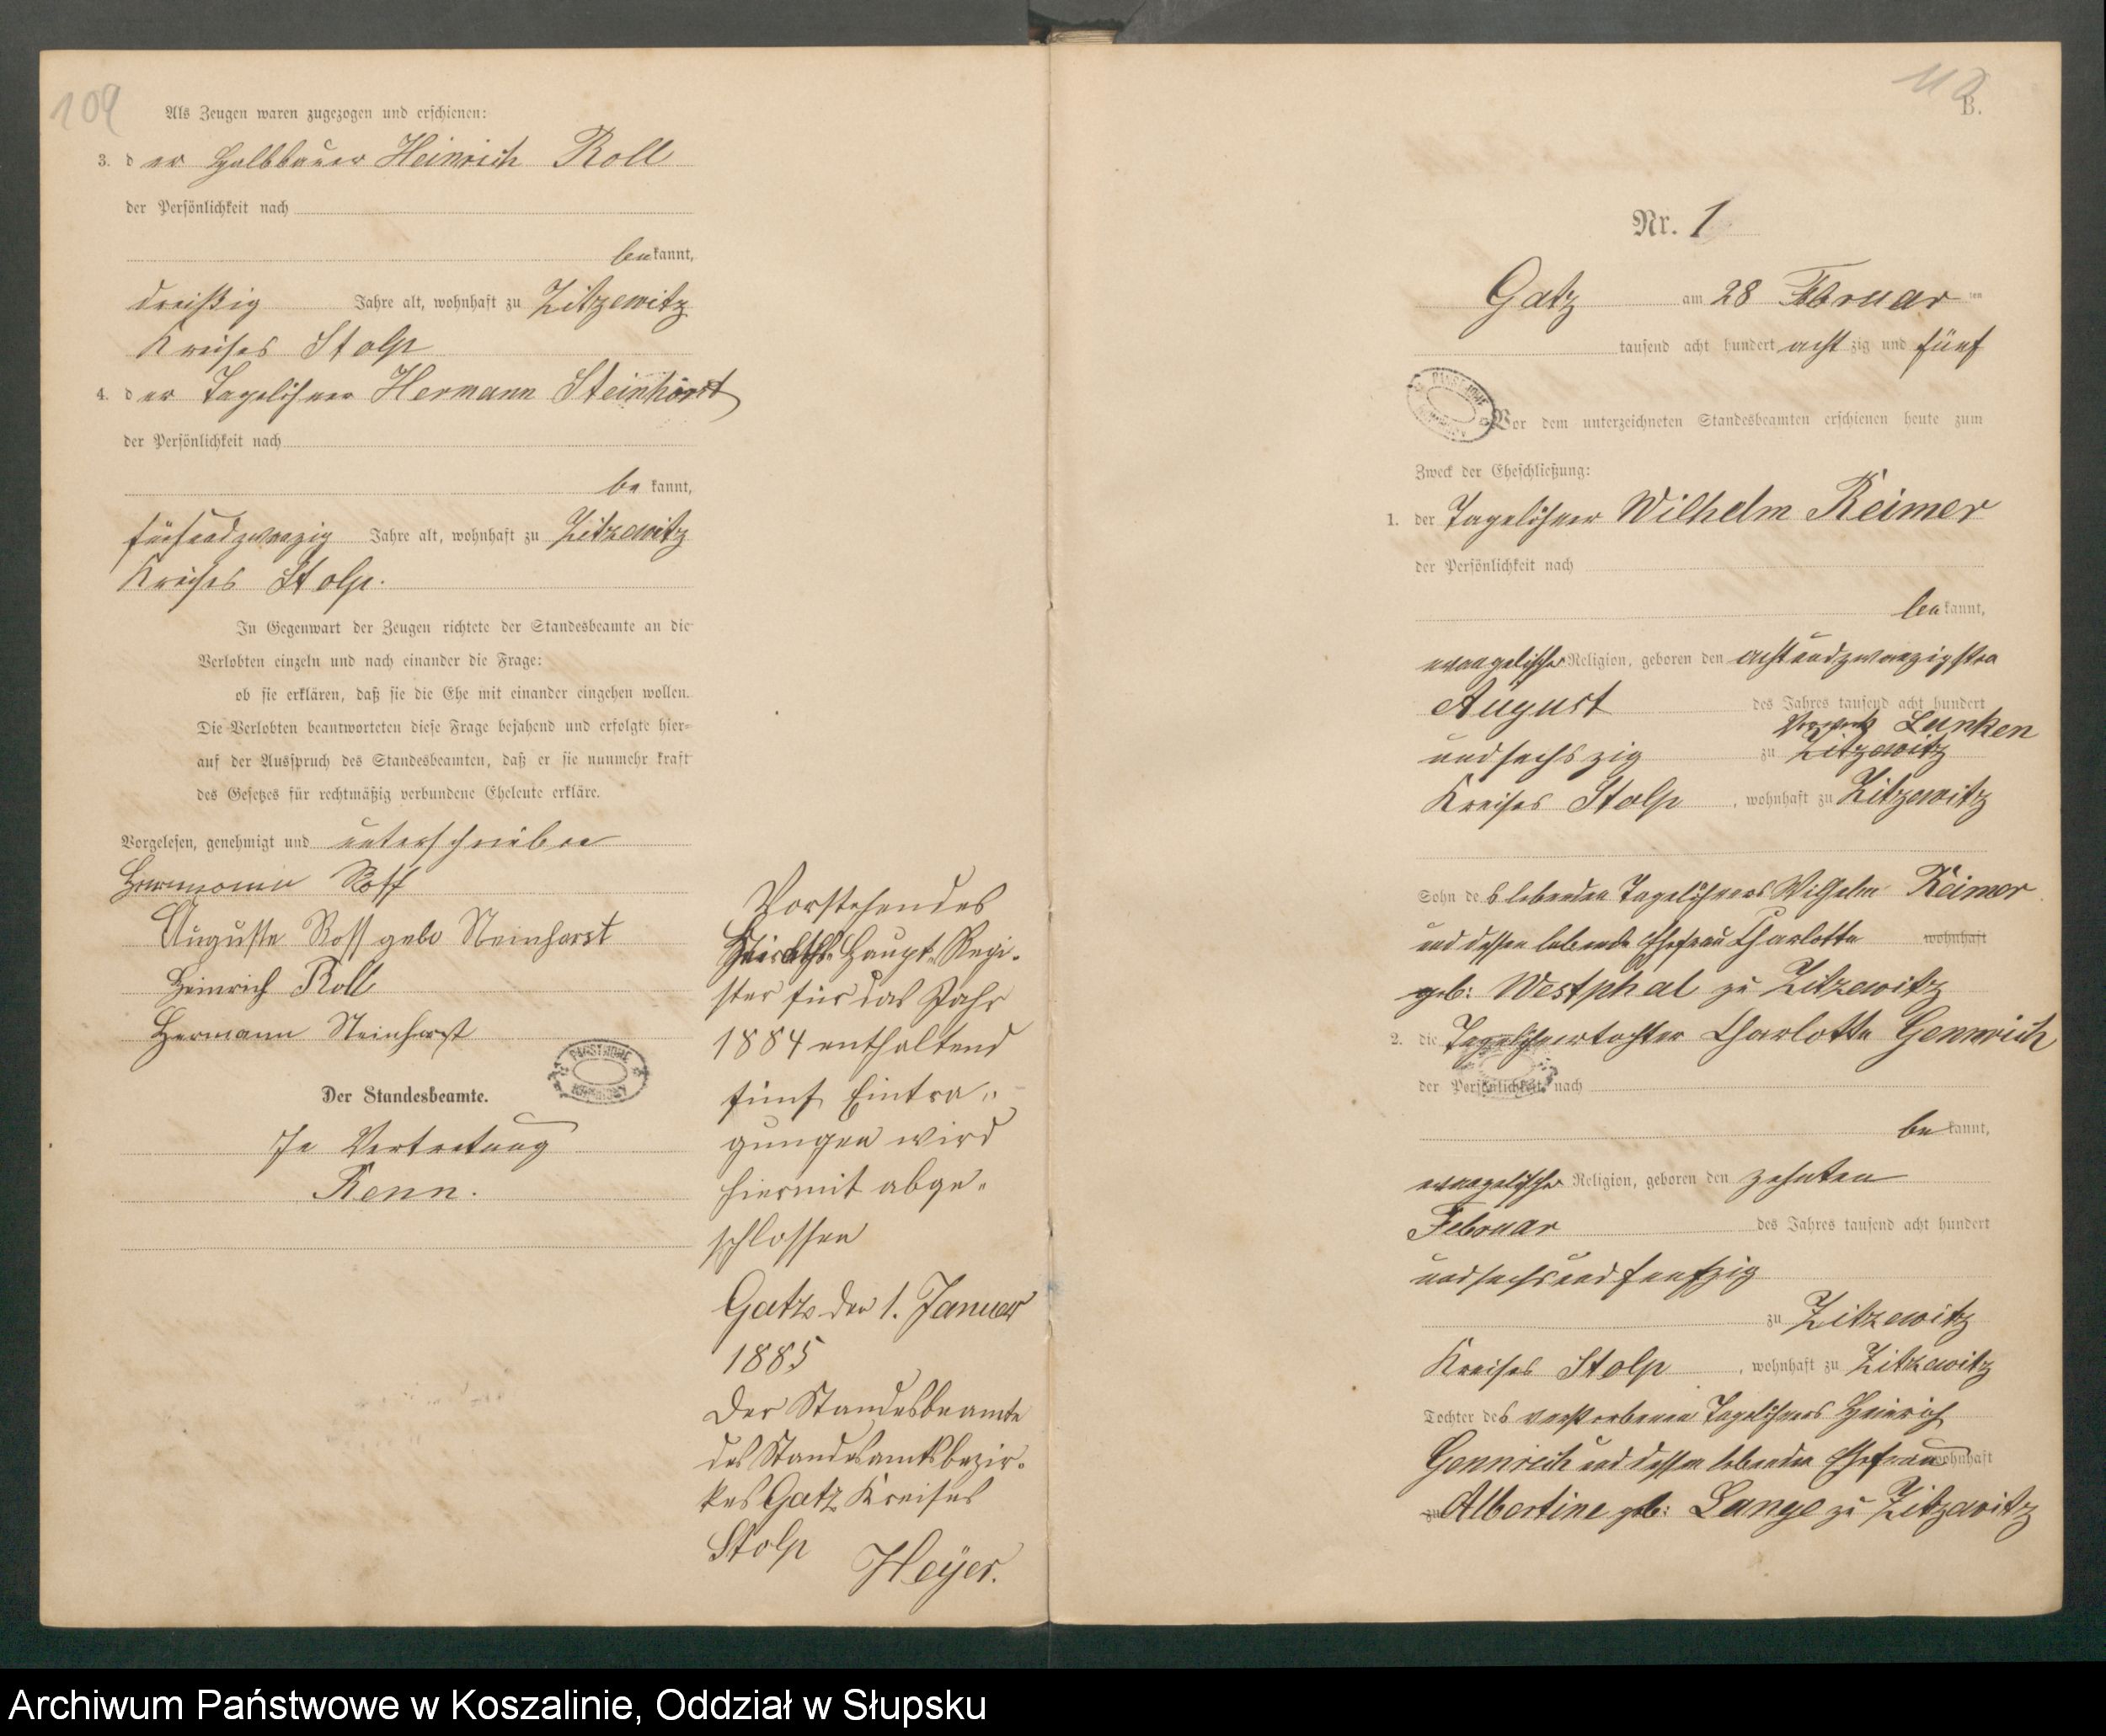 109
Als Zeugen waren zugezogen und erschienen:
3. der Halbbauer Heinrich Roll
der Persönlichkeit nach
bekannt,
dreißig Jahre alt, wohnhaft zu Zitzewitz
Kreises Stolp
4. der Tagelöhner Hermann Steinhorst
der Persönlichkeit nach
be kannt,
fünfundzwanzig Jahre alt, wohnhaft zu Zitzewitz
Kreises Stolp.
In Gegenwart der Zeugen richtete der Standesbeamte an die
Verlobten einzeln und nach einander die Frage:
ob sie erklären, daß sie die Ehe mit einander eingehen wollen.
Die Verlobten beantworteten diese Frage bejahend und erfolgte hier=
auf der Ausspruch des Standesbeamten, daß er sie nunmehr kraft
des Gesetzes für rechtmäßig verbundene Eheleute erkläre.
Vorgelesen, genehmigt und unterschrieben
Hermann Roß
Auguste Roß geb Steinhorst
Heinrich Roll
Hermann Steinhorst
Der Standesbeamte.
In Vertretung
Renn.
Vorstehendes
Heiraths-Haupt-Regi-
ster für das Jahr
1884 enthaltend
fünf Eintra-
gungen wird
hiermit abge-
schlossen
Gatz den 1. Januar
1885
Der Standesbeamte
des Standesamtsbezir-
kes Gatz Kreises
Stolp
Heyer.
110
B.
Nr. 1
Gatz am 28 Februar ten
tausend acht hundert acht zig und fünf
Vor dem unterzeichneten Standesbeamten erschienen heute zum
Zweck der Eheschließung:
1. der Tagelöhner Wilhelm Reimer
der Persönlichkeit nach
bekannt,
evangelischer Religion, geboren den achtundzwanzigsten
August des Jahres tausend acht hundert
Vorwerk Lanken
undsechszig zu Zitzewitz
Kreises Stolp, wohnhaft zu Zitzewitz
Sohn des lebenden Tagelöhners Wilhelm Reimer
und dessen lebende Ehefrau Charlotte wohnhaft
geb: Westphal zu Zitzewitz
2. die Tagelöhnertochter Charlotte Gennrich
der Persönlichkeit nach
be kannt,
evangelischer Religion, geboren den zehnten
Februar des Jahres tausend acht hundert
undsechsundfunfzig
zu Zitzewitz
Kreises Stolp, wohnhaft zu Zitzewitz
Tochter des verstorbenen Tagelöhners Heinrich
Gennrich und dessen lebenden Ehefrau wohnhaft
zu Albertine geb: Lange zu Zitzewitz
Archiwum Państwowe w Koszalinie, Oddział w Słupsku